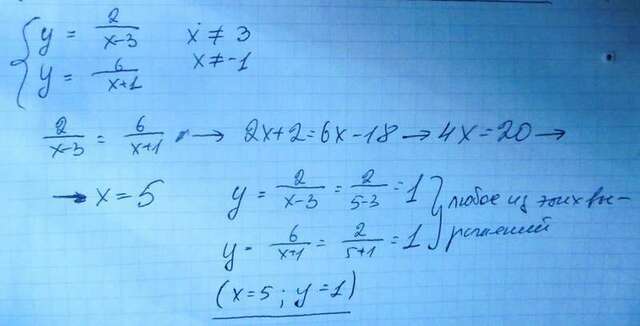 { y = 2/(x-3) x ≠ 3
y = 6/(x+1) x ≠ -1
2/(x-3) = 6/(x+1) → 2x+2=6x-18 → 4x=20 →
→ x = 5 y = 2/(x-3) = 2/(5-3) = 1 } любое из этих вы-
y - 6/(x+1) = 2/(5+1) = 1 ражений
(x=5 ; y=1)